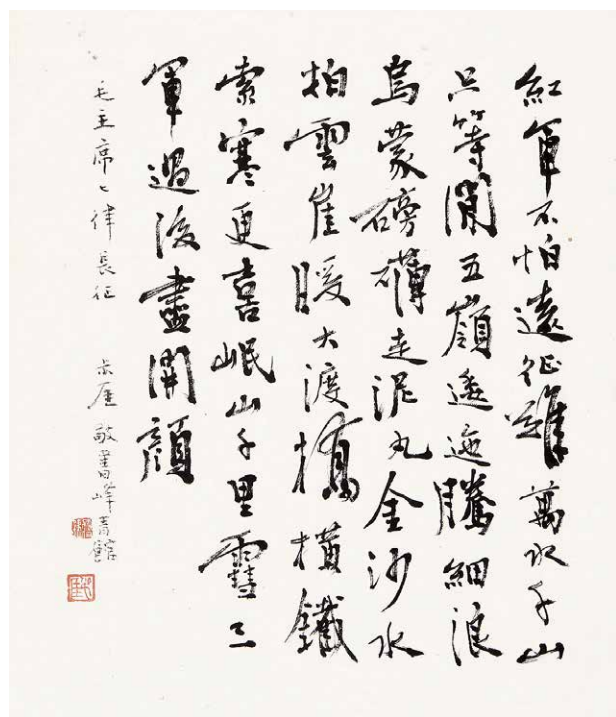 紅軍不怕遠征難萬水千山
只等閒五嶺逶迤騰細浪
烏蒙磅礴走泥丸金沙水
拍雲崖暖大渡橋橫鐵
索寒更喜岷山千里雪三
軍過後盡開顏
毛主席七律長征 敬書峰青館